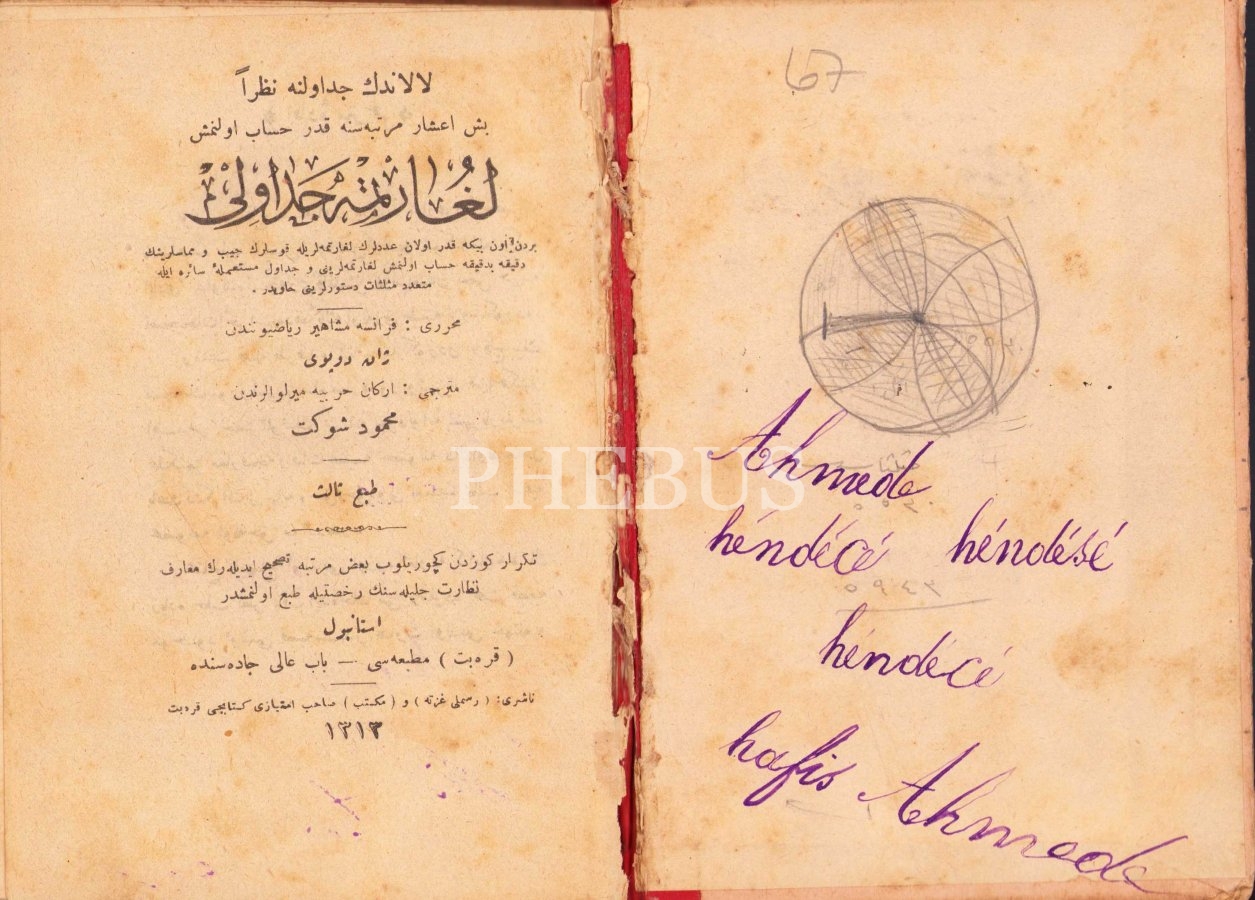 لالاندك جداولنه نظراً
بش اعشار مرتبه‌سنه قدر حساب اولنمش
لغارتمه جداولی
بردن اون بیكه قدر اولان عددلرك لغارتمه‌لریله قوسلرك جیب و مماسلرینك
دقیقه بدقیقه حساب اولنمش لغارتمه‌لرینی و جداول مستعملهٔ سائره ایله
متعدد مثلثات دستورلرینی حاویدر .
محرری : فرانسه مشاهیر ریاضیوننندن
ژان دوپوی
مترجمی : اركان حربیه میرلوالرندن
محمود شوكت
طبع ثالث
تكرار كوزدن كچوریلوب بعض مرتبه تصحیح ایدیله‌رك معارف
نظارت جلیله‌سنك رخصتیله طبع اولنمشدر
استانبول
( قره‌بت ) مطبعه‌سی — باب عالی جاده‌سنده
ناشری: ( رسملی غزته ) و ( مكتب ) صاحب امتیازی كتابجی قره‌بت
١٣١٣
67
Ahmede
héndécé héndésé
héndécé
hafis Ahmede
٥٩٤٣
PHEBUS